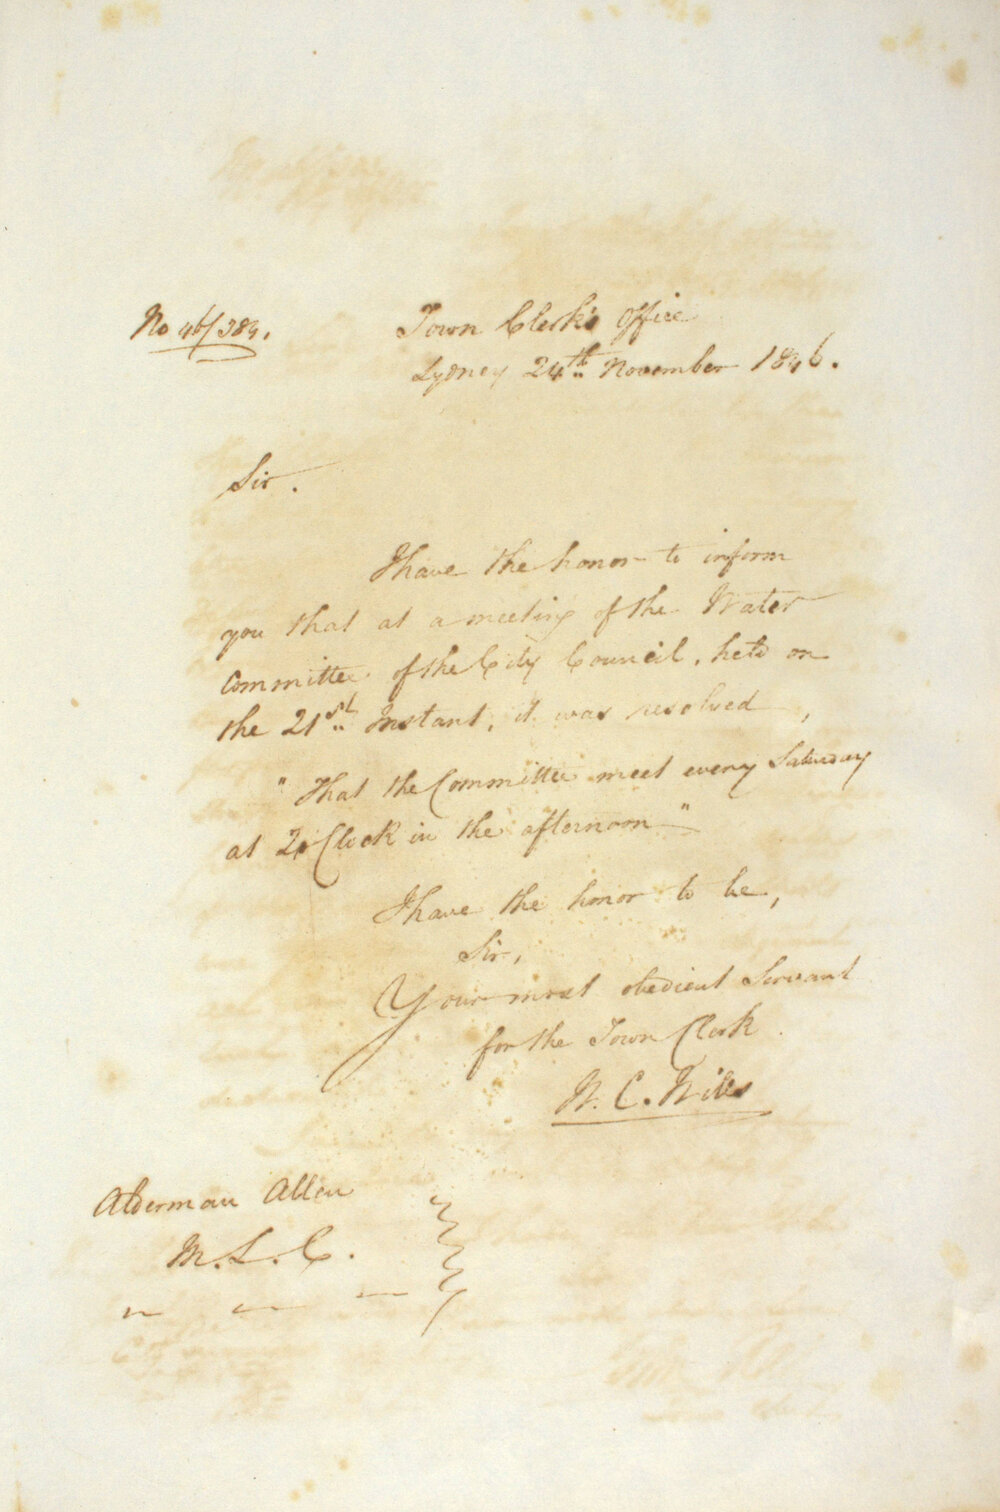 No 46/384.
Town Clerk's Office
Sydney 24th November 1846.
Sir.
I have the honor to inform
you that at a meeting of the Water
Committee of the City Council, held on
the 21st Instant, it was resolved,
"That the Committee meet every Saturday
at 2 o'Clock in the afternoon"
I have the honor to be,
Sir,
Your most obedient Servant
for the Town Clerk
W. C. Wills
Alderman Allen
M. L. C.